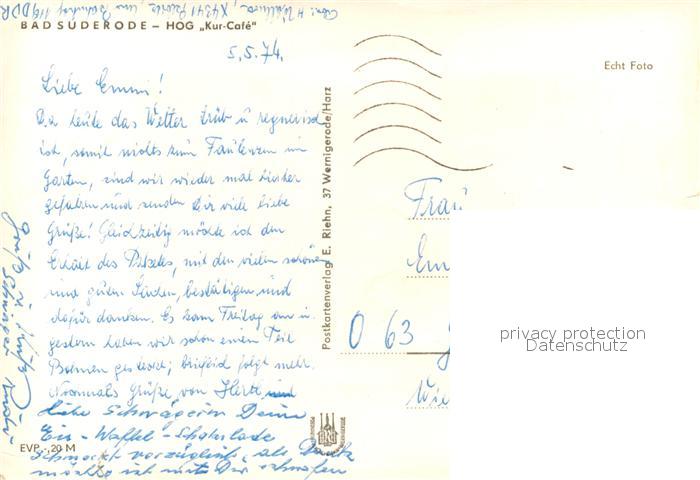 BAD SUDERODE – HOG „Kur-Café"
5.5.74.
Liebe Emmi!
Da heute das Wetter trüb u regnerisch
ist, somit nichts zum Faulenzen im
Garten, sind wir wieder mal hierher
gefahren und senden Dir viele liebe
Grüße! Gleichzeitig möchte ich den
Erhalt des Paketes, mit den vielen schönen
und guten Sachen, bestätigen und
dafür danken. Es kam Freitag an u.
gestern haben wir schon einen Teil
gekostet; brieflich folgt mehr.
Nochmals Grüße von Herta und
Liebe Schwägerin Deine
Eis-Waffel-Schokolade
schmeckt vorzüglich, als Dank
möchte ich mit Dir
EVP -,20 M
Postkartenverlag E. Riehn, 37 Wernigerode/Harz
Echt Foto
Frau
Em
O 63
Wie
privacy protection
Datenschutz